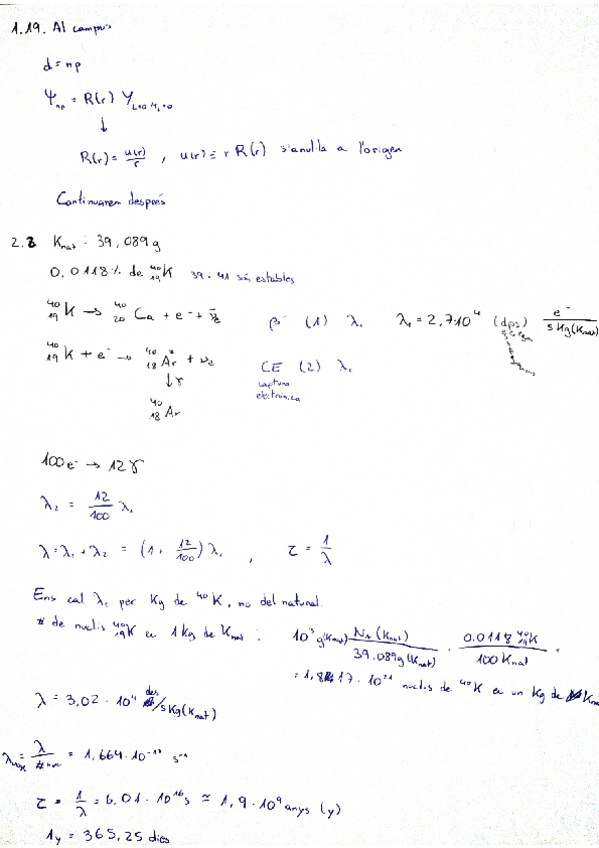 1.19. Al campus
d = np
Ψnp = R(r) Y L=0 M=0
↓
R(r) = u(r)/r , u(r) ≡ r R(r) s'anul·la a l'origen
Continuarem després
2.8 Knat : 39,089 g
0.0118% de ⁴⁰₁₉K 39-41 són estables
⁴⁰₁₉K → ⁴⁰₂₀Ca + e⁻ + ν̄e β⁻ (1) λ₁ λ₁ = 2,7·10⁴ (dps) e⁻ / s Kg(Knat)
⁴⁰₁₉K + e⁻ → ⁴⁰₁₈Ar* + νe CE (2) λ₂
captura
electrònica
↓γ
⁴⁰₁₈Ar
100 e⁻ → 12 γ
λ₂ = 12/100 λ₁
λ = λ₁ + λ₂ = (1 + 12/100) λ₁ , τ = 1/λ
Ens cal λ, per Kg de ⁴⁰K, no del natural.
# de nuclis ⁴⁰₁₉K en 1 kg de Knat : 10³ g(Knat) NA (Knat) / 39.089 g (Knat) · 0.0118 ⁴⁰₁₉K / 100 Knat =
= 1,817·10²¹ nuclis de ⁴⁰K en un Kg de
λ = 3,02·10⁴ des/s Kg(Knat)
λ / # nuc = 1,664·10⁻¹⁷ s⁻¹
τ = 1/λ = 6,01·10¹⁶ s ≃ 1,9·10⁹ anys (y)
1y = 365,25 dies